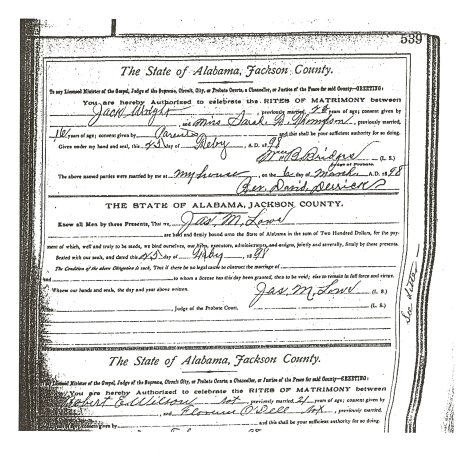 539
The State of Alabama, Jackson County.
To any Licensed Minister of the Gospel, Judge of the Supreme, Circuit, City, or Probate Courts, a Chancellor, or Justice of the Peace for said County—GREETING:
You are hereby Authorized to celebrate the RITES OF MATRIMONY between
Jack Wright, previously married, 28 years of age; consent given by
and Miss Sarah Thompson, previously married,
16 years of age; consent given by Parents and this shall be your sufficient authority for so doing.
Given under my hand and seal, this 25 day of Feby A. D. 1898
B. Bridges (L. S.)
Judge of Probate.
The above named parties were married by me at my house on the 6 day of March A. D. 1898
Rev. David Derrick
THE STATE OF ALABAMA, JACKSON COUNTY.
Know all Men by these Presents, That we, Jas. M. Lowe
are held and firmly bound unto the State of Alabama in the sum of Two Hundred Dollars, for the pay-
ment of which, well and truly to be made, we bind ourselves, our heirs, executors, administrators, and assigns, jointly and severally, firmly by these presents.
Sealed with our seals, and dated this 25 day of Feby 1898
The Condition of the above Obligation is such, That if there be no legal cause to obstruct the marriage of
and to whom a license has this day been granted, then to be void; else to remain in full force and virtue.
Witness our hands and seals, the day and year above written. Jas. M. Lowe (L. S.)
Judge of the Probate Court. (L. S.)
The State of Alabama, Jackson County.
Licensed Minister of the Gospel, Judge of the Supreme, Circuit City, or Probate Courts, a Chancellor, or Justice of the Peace for said County—GREETING:
You are hereby Authorized to celebrate the RITES OF MATRIMONY between
Robert E. Wilson not previously married, 21 years of age; consent given by
and Florence O'Dell not previously married,
and this shall be your sufficient authority for so doing.